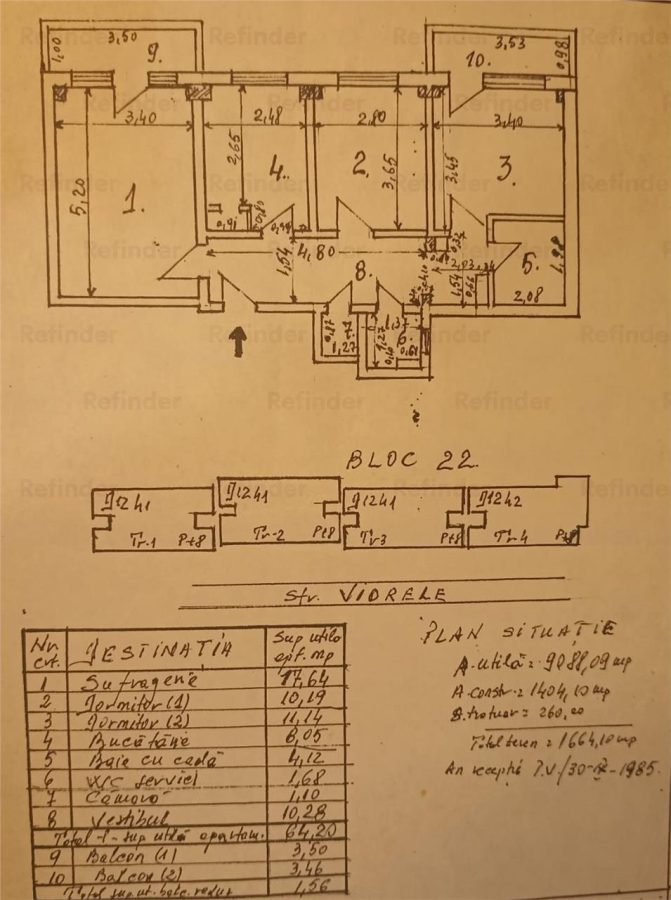 1,00
3,50
9.
3,53
0,98
10.
3,40
2,48
2,80
3,40
2,65
3,65
3,45
5,20
1.
4.
2.
3.
0,91
0,80
4,80
1,54
8.
5.
1,98
2,08
1,54
0,66
0,87
7
1,27
1,37
1,27
6
BLOC 22.
Tr-1
P+8
Tr-2
P+8
Tr3
P+8
Tr.4
P+8
Str. VIORELE
Nr. crt.
DESTINATIA
Sup utila
apt. mp
1 Sufragerie 17,64
2 Dormitor (1) 10,19
3 Dormitor (2) 11,14
4 Bucătărie 8,05
5 Baie cu cadă 4,12
6 WC servici 1,68
7 Cămară 1,10
8 Vestibul 10,28
Total-1-sup utilă apartam. 64,20
9 Balcon (1) 3,50
10 Balcon (2) 3,46
Total sup. ut. balc. redus 1,56
PLAN SITUAȚIE
A. utilă = 9088,09 mp
A constr = 1404,10 mp
trotuar = 260,00
Total teren = 1664,10 mp
An receptie P.V./30-IV-1985.
Refinder